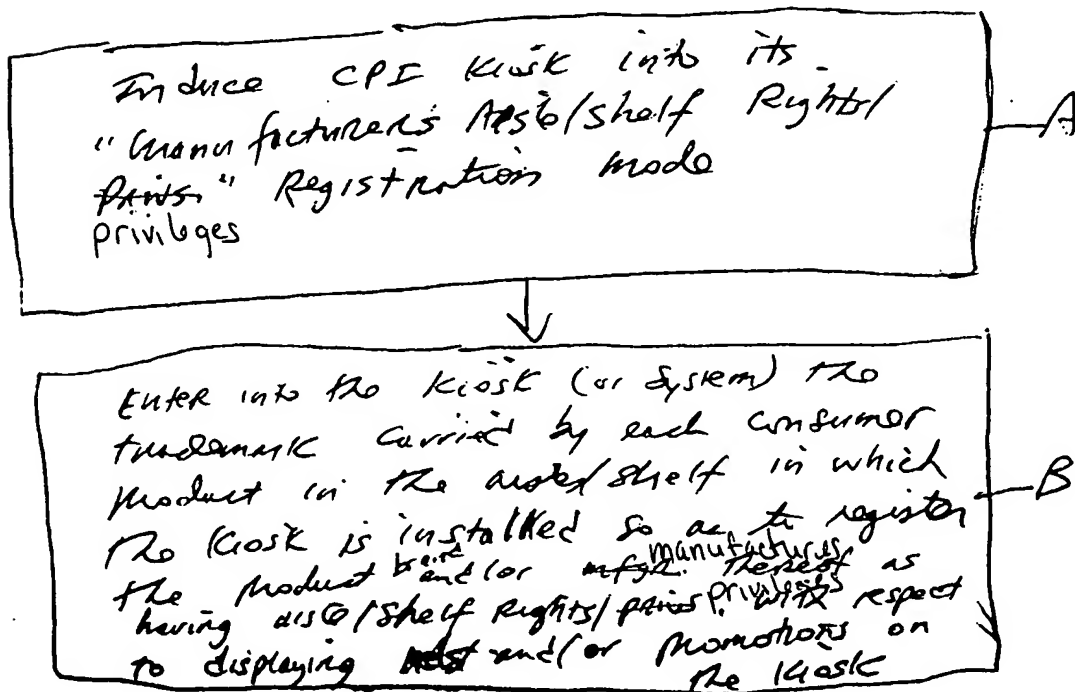 Induce CPI Kiosk into its
"Manufacturer's Aisle/Shelf Rights/
Privs." Registration mode
privileges
A
Enter into the Kiosk (or System) the
trademark carried by each consumer
product in the aisle/shelf in which
the Kiosk is installed so as to register
the product brand and/or mfgr. manufactures thereof as
having aisle/shelf Rights/privs privileges with respect
to displaying and/or promotions on
the Kiosk
B